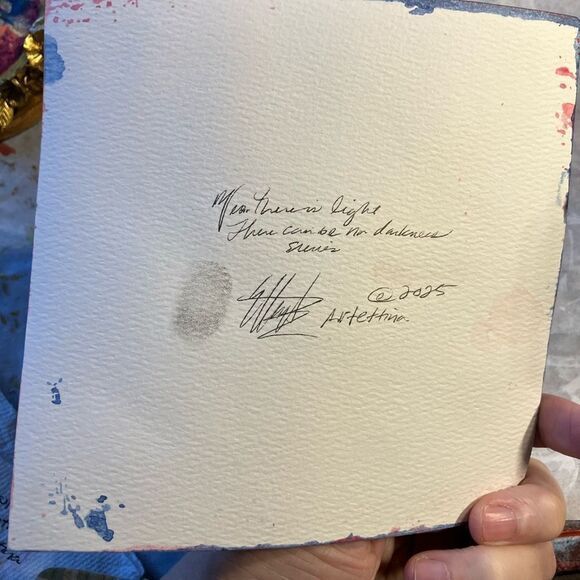 there is light
There can be no darkness
series
© 2025
Artettina